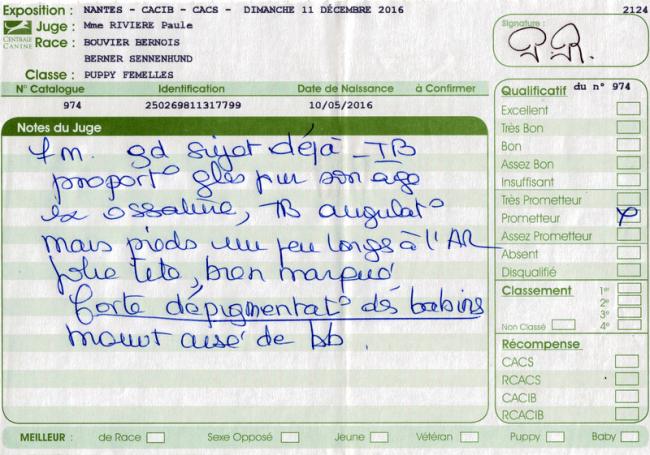 Exposition : NANTES - CACIB - CACS - DIMANCHE 11 DÉCEMBRE 2016 2124
Juge : Mme RIVIERE Paule
CENTRALE CANINE
Race : BOUVIER BERNOIS
BERNER SENNENHUND
Classe : PUPPY FEMELLES
Signature :
P.R.
N° Catalogue Identification Date de Naissance à Confirmer
974 250269811317799 10/05/2016
Notes du Juge
7 m. gd sujet déjà - TB
proport° gles pur son age
ex ossature, TB angulat°
mais pieds un peu longs à l'AR
jolie tete, bien marqué
forte dépigmentat° des babins
mouvt aisé de bb.
Qualificatif du n° 974
Excellent
Très Bon
Bon
Assez Bon
Insuffisant
Très Prometteur
Prometteur X
Assez Prometteur
Absent
Disqualifié
Classement 1er
2e
3e
Non Classé 4e
Récompense
CACS
RCACS
CACIB
RCACIB
MEILLEUR : de Race Sexe Opposé Jeune Vétéran Puppy Baby